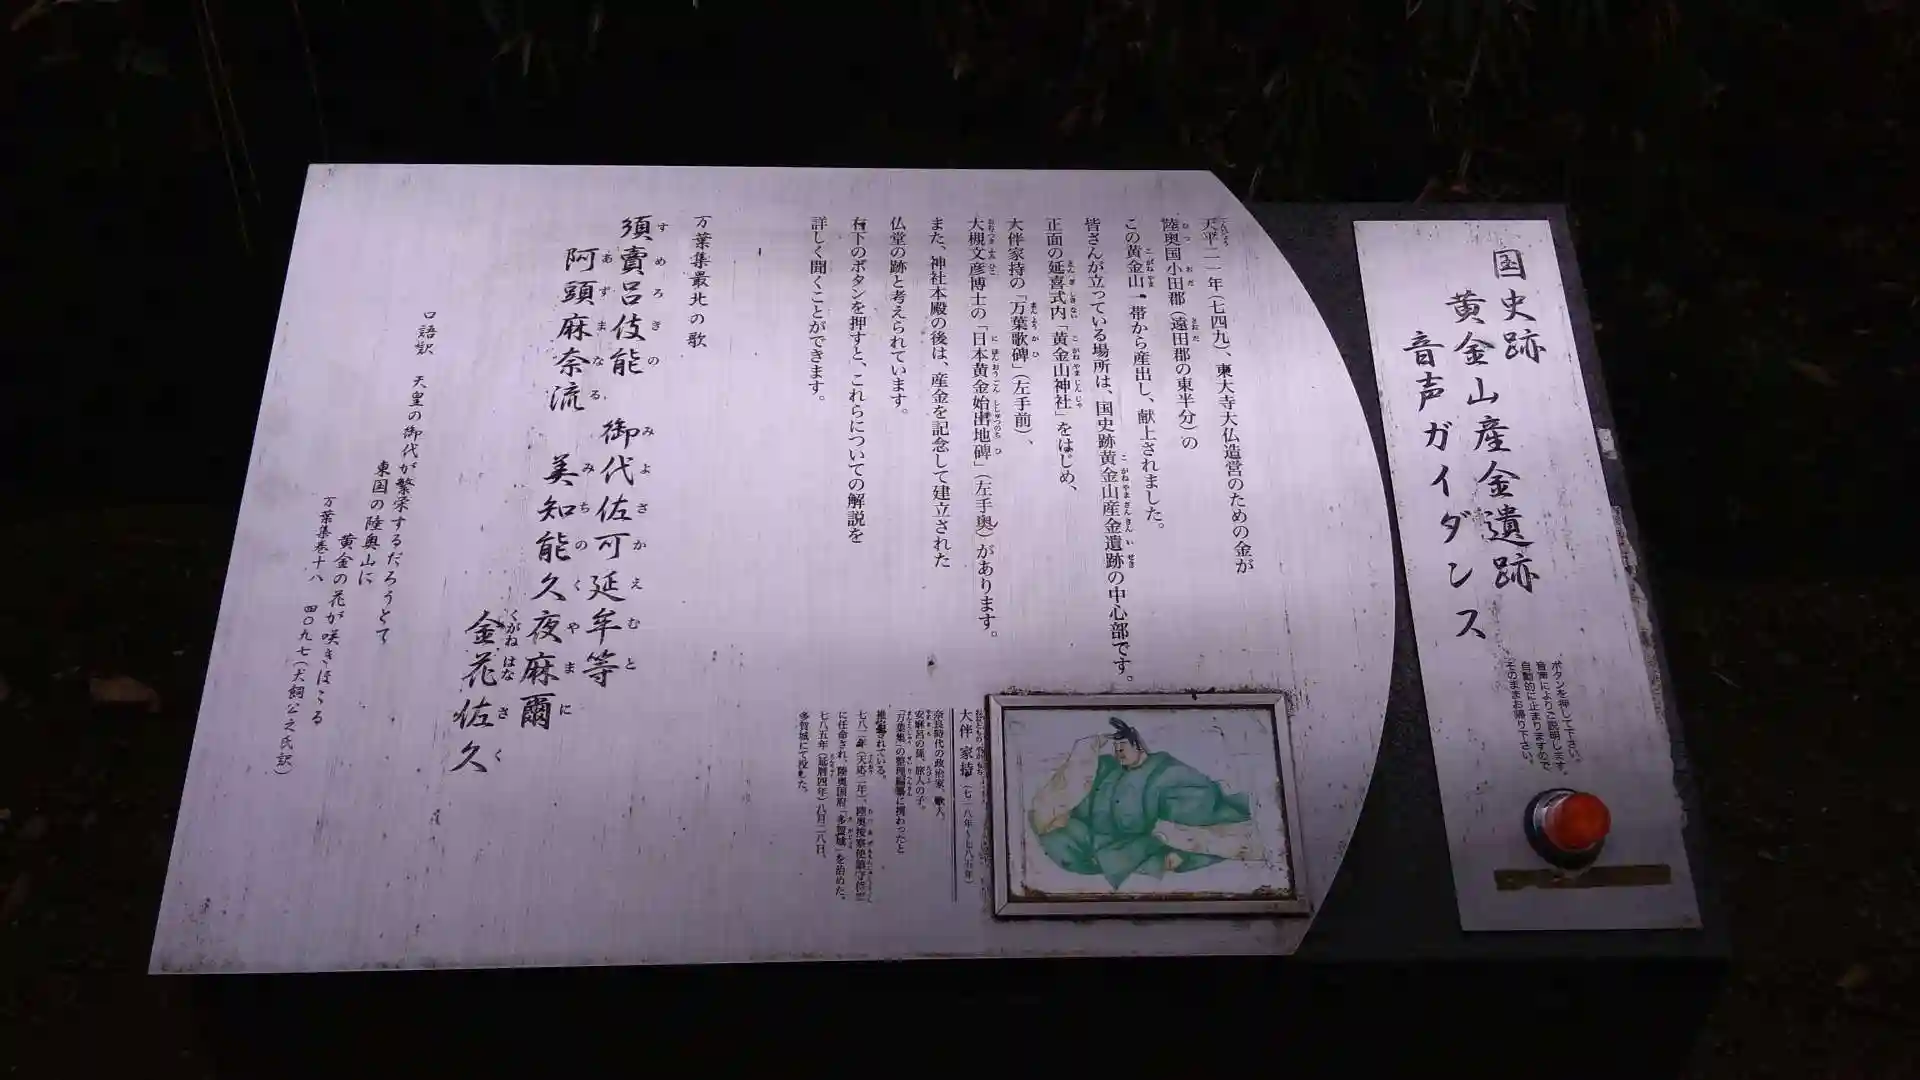 国史跡
黄金山産金遺跡
音声ガイダンス
ボタンを押して下さい。
音声によりご説明します。
自動的に止まりますので
そのままお帰り下さい。
天平二一年(七四九)、東大寺大仏造営のための金が
陸奥国小田郡(遠田郡の東半分)の
この黄金山一帯から産出し、献上されました。
皆さんが立っている場所は、国史跡黄金山産金遺跡の中心部です。
正面の延喜式内「黄金山神社」をはじめ、
大伴家持の「万葉歌碑」(左手前)、
大槻文彦博士の「日本黄金始出地碑」(左手奥)があります。
また、神社本殿の後は、産金を記念して建立された
仏堂の跡と考えられています。
右下のボタンを押すと、これらについての解説を
詳しく聞くことができます。
大伴家持(七一八年~七八五年)
奈良時代の政治家、歌人。
安麻呂の孫、旅人の子。
「万葉集」の整理編纂に携わったと
推定されている。
七八二年(天応二年)、陸奥按察使鎮守将軍
に任命され、陸奥国府「多賀城」を治めた。
七八五年(延暦四年)八月二八日、
多賀城にて没した。
万葉集最北の歌
須賣呂伎能 御代佐可延牟等
阿頭麻奈流 美知能久夜麻爾
金花佐久
口語訳 天皇の御代が繁栄するだろうとて
東国の陸奥山に
黄金の花が咲きほこる
万葉集巻十八 四〇九七(犬飼公之氏訳)